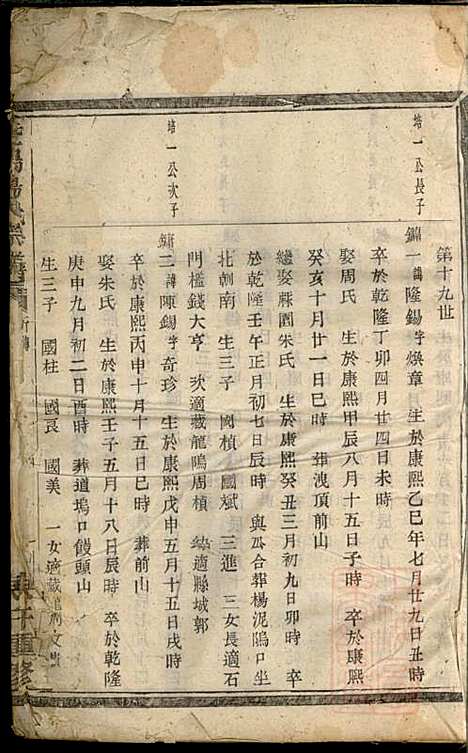 第十九世
培一公長子
鏞一諱隆錫字煥章 生於康熙乙巳年七月廿九日丑時
卒於乾隆丁卯四月廿四日未時
娶周氏 生於康熙甲辰八月十五日子時 卒於康熙
癸亥十月廿一日巳時 葬洩頂前山
繼娶蔴園朱氏 生於康熙癸丑三月初九日卯時 卒
於乾隆壬午正月初七日辰時 與公合葬楊泥塢口坐
北朝南 生三子 國楨 國斌 三進 三女長適石
門檻錢大亨 次適藏龍塢周楨 適縣城郭
培一公次子
鏞二諱陳錫字奇珍 生於康熙戊申五月十五日戌時
卒於康熙丙申十月十五日巳時 葬前山
娶朱氏 生於康熙壬子五月十八日辰時 卒於乾隆
庚申九月初二日酉時 葬道塢口饅頭山
生三子 國柱 國良 國美 一女適藏龍塢文